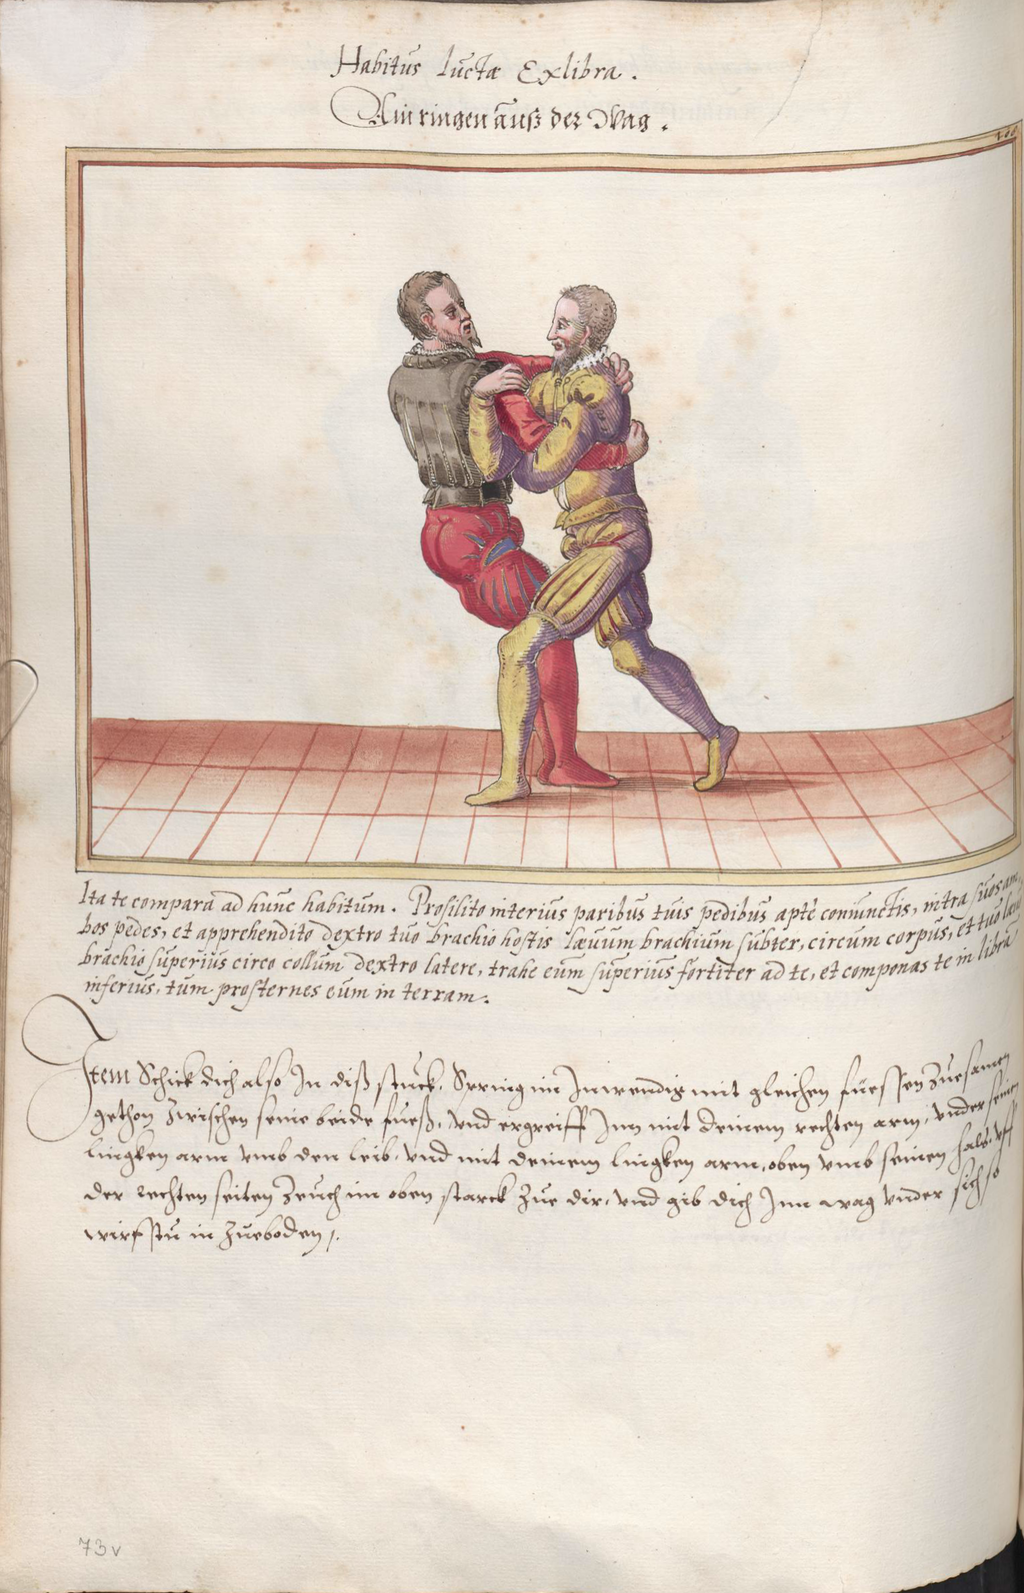 Habitus luctæ Exlibra.
Ain ringen auß der Wag.
Ita te compara ad hunc habitum. Prosilito interius paribus tuis pedibus aptè coniunctis, intra suos am
bos pedes, et apprehendito dextro tuo brachio hostis læuum brachium subter, circum corpus, et tuo læuo
brachio superius circa collum dextro latere, trahe eum superius fortiter ad te, et componas te in libra
inferius, tum prosternes eum in terram.
Item Schick dich also In diß stuck. Spring im Inwendig mit gleichen füessen zuesamen
gethon zwischen seine beide fueß, vnd ergreiff Inn mit deinem rechten arm, vnder seinen
lingken arm vmb den leib, vnd mit deinem lingken arm, oben vmb seinen hals, vff
der rechten seiten Zeuch im oben starck zue dir, vnd gib dich Inn wag vnder sich so
wirfstu in zueboden.
73v